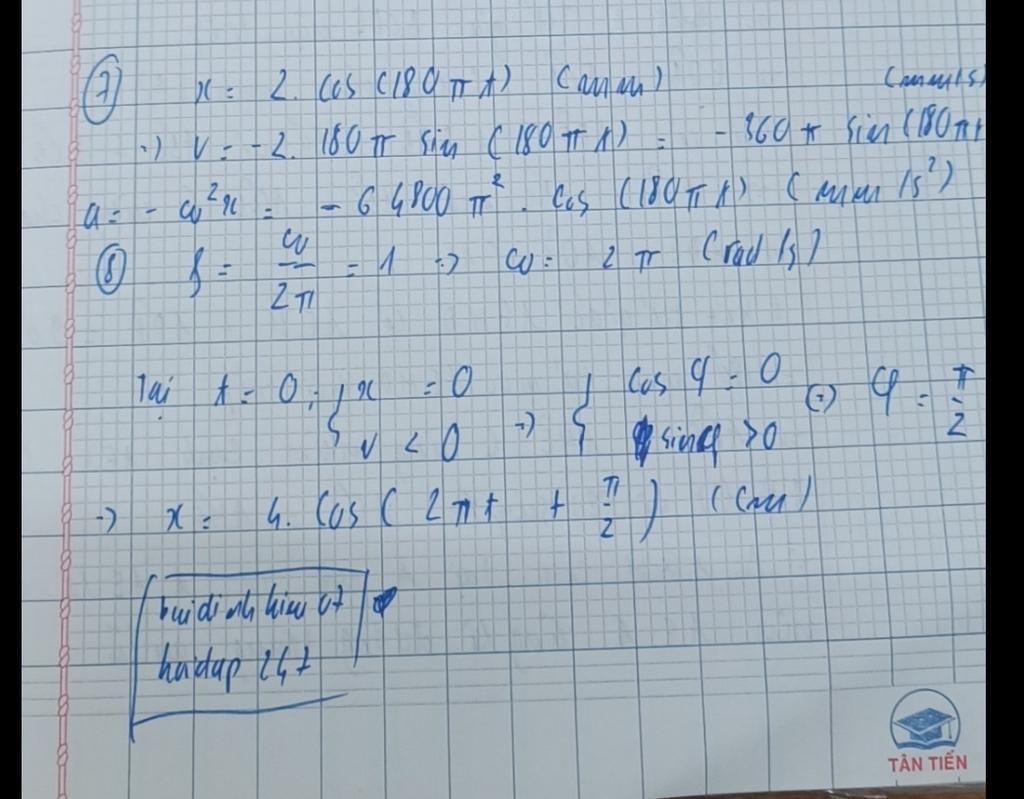 7 x = 2. cos (180πt) (mm)
(mm/s)
=> v = -2. 180π sin (180πt) = -360π sin (180πt
a = -ω²x = -64800π². cos (180πt) (mm/s²)
8 f = ω/2π = 1 => ω = 2π (rad/s)
Tại t = 0 : { x = 0 v < 0 => { cos φ = 0 sin φ > 0 (=) φ = π/2
=> x = 4. cos ( 2πt + π/2 ) (cm)
buidinhhieu07
hoidap 247
TÂN TIẾN